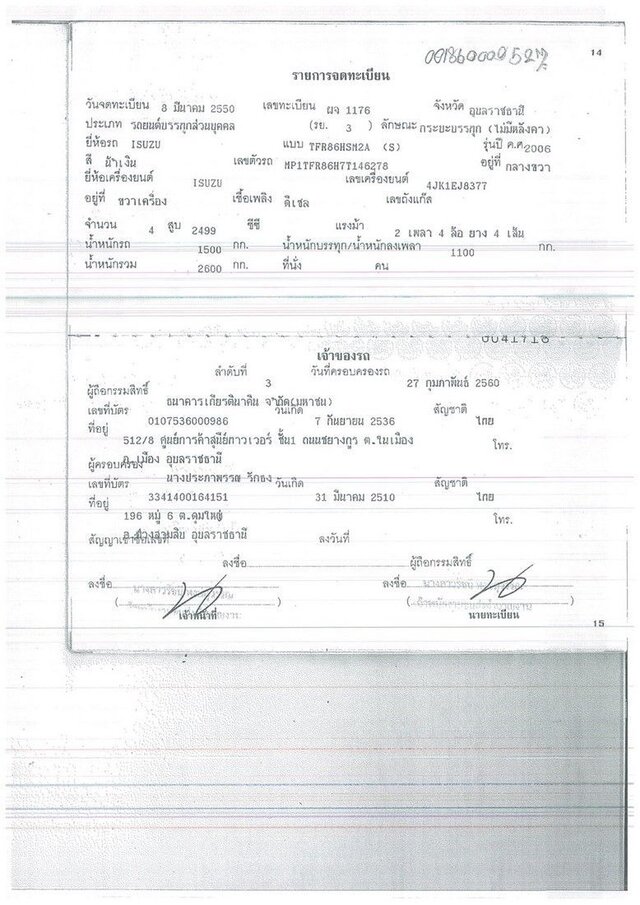 14
รายการจดทะเบียน
วันจดทะเบียน 8 มีนาคม 2550 เลขทะเบียน ผจ 1176 จังหวัด อุบลราชธานี
ประเภท รถยนต์บรรทุกส่วนบุคคล (รย. 3 ) ลักษณะ กระบะบรรทุก (ไม่มีหลังคา)
ยี่ห้อรถ ISUZU แบบ TFR86HSM2A (S) รุ่นปี ค.ศ 2006
สี น้ำเงิน เลขตัวรถ MP1TFR86H7T146278 อยู่ที่ กลางขวา
ยี่ห้อเครื่องยนต์ ISUZU เลขเครื่องยนต์ 4JK1EJ8377
อยู่ที่ ขวาเครื่อง เชื้อเพลิง ดีเซล เลขถังแก๊ส
จำนวน 4 สูบ 2499 ซีซี แรงม้า 2 เพลา 4 ล้อ ยาง 4 เส้น
น้ำหนักรถ 1500 กก. น้ำหนักบรรทุก/น้ำหนักลงเพลา 1100 กก.
น้ำหนักรวม 2600 กก. ที่นั่ง คน
0041716
เจ้าของรถ
ลำดับที่ 3 วันที่ครอบครองรถ 27 กุมภาพันธ์ 2560
ผู้ถือกรรมสิทธิ์ ธนาคารเกียรตินาคิน จำกัด(มหาชน)
เลขที่บัตร 0107536000986 วันเกิด 7 กันยายน 2536 สัญชาติ ไทย
ที่อยู่ 512/8 ศูนย์การค้าสุนีย์ทาวเวอร์ ชั้น1 ถนนชยางกูร ต.ในเมือง
อ.เมือง อุบลราชธานี โทร.
ผู้ครอบครอง นางประภาพรรณ รักธง
เลขที่บัตร 3341400164151 วันเกิด 31 มีนาคม 2510 สัญชาติ ไทย
ที่อยู่ 196 หมู่ 6 ต.ดุมใหญ่ โทร.
อ.ม่วงสามสิบ อุบลราชธานี
สัญญาเช่าซื้อเลขที่ ลงวันที่
ลงชื่อ ผู้ถือกรรมสิทธิ์
ลงชื่อ ลงชื่อ
เจ้าหน้าที่ นายทะเบียน
15